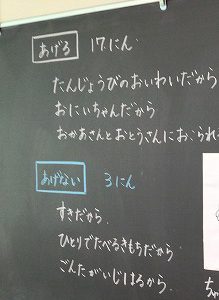 あげる 17にん
たんじょうびのおいわいだから
おにいちゃんだから
おかあさんとおとうさんにおこられ
あげない 3にん
すきだから
ひとりでたべるきもちだから
ごんたがいじはるから